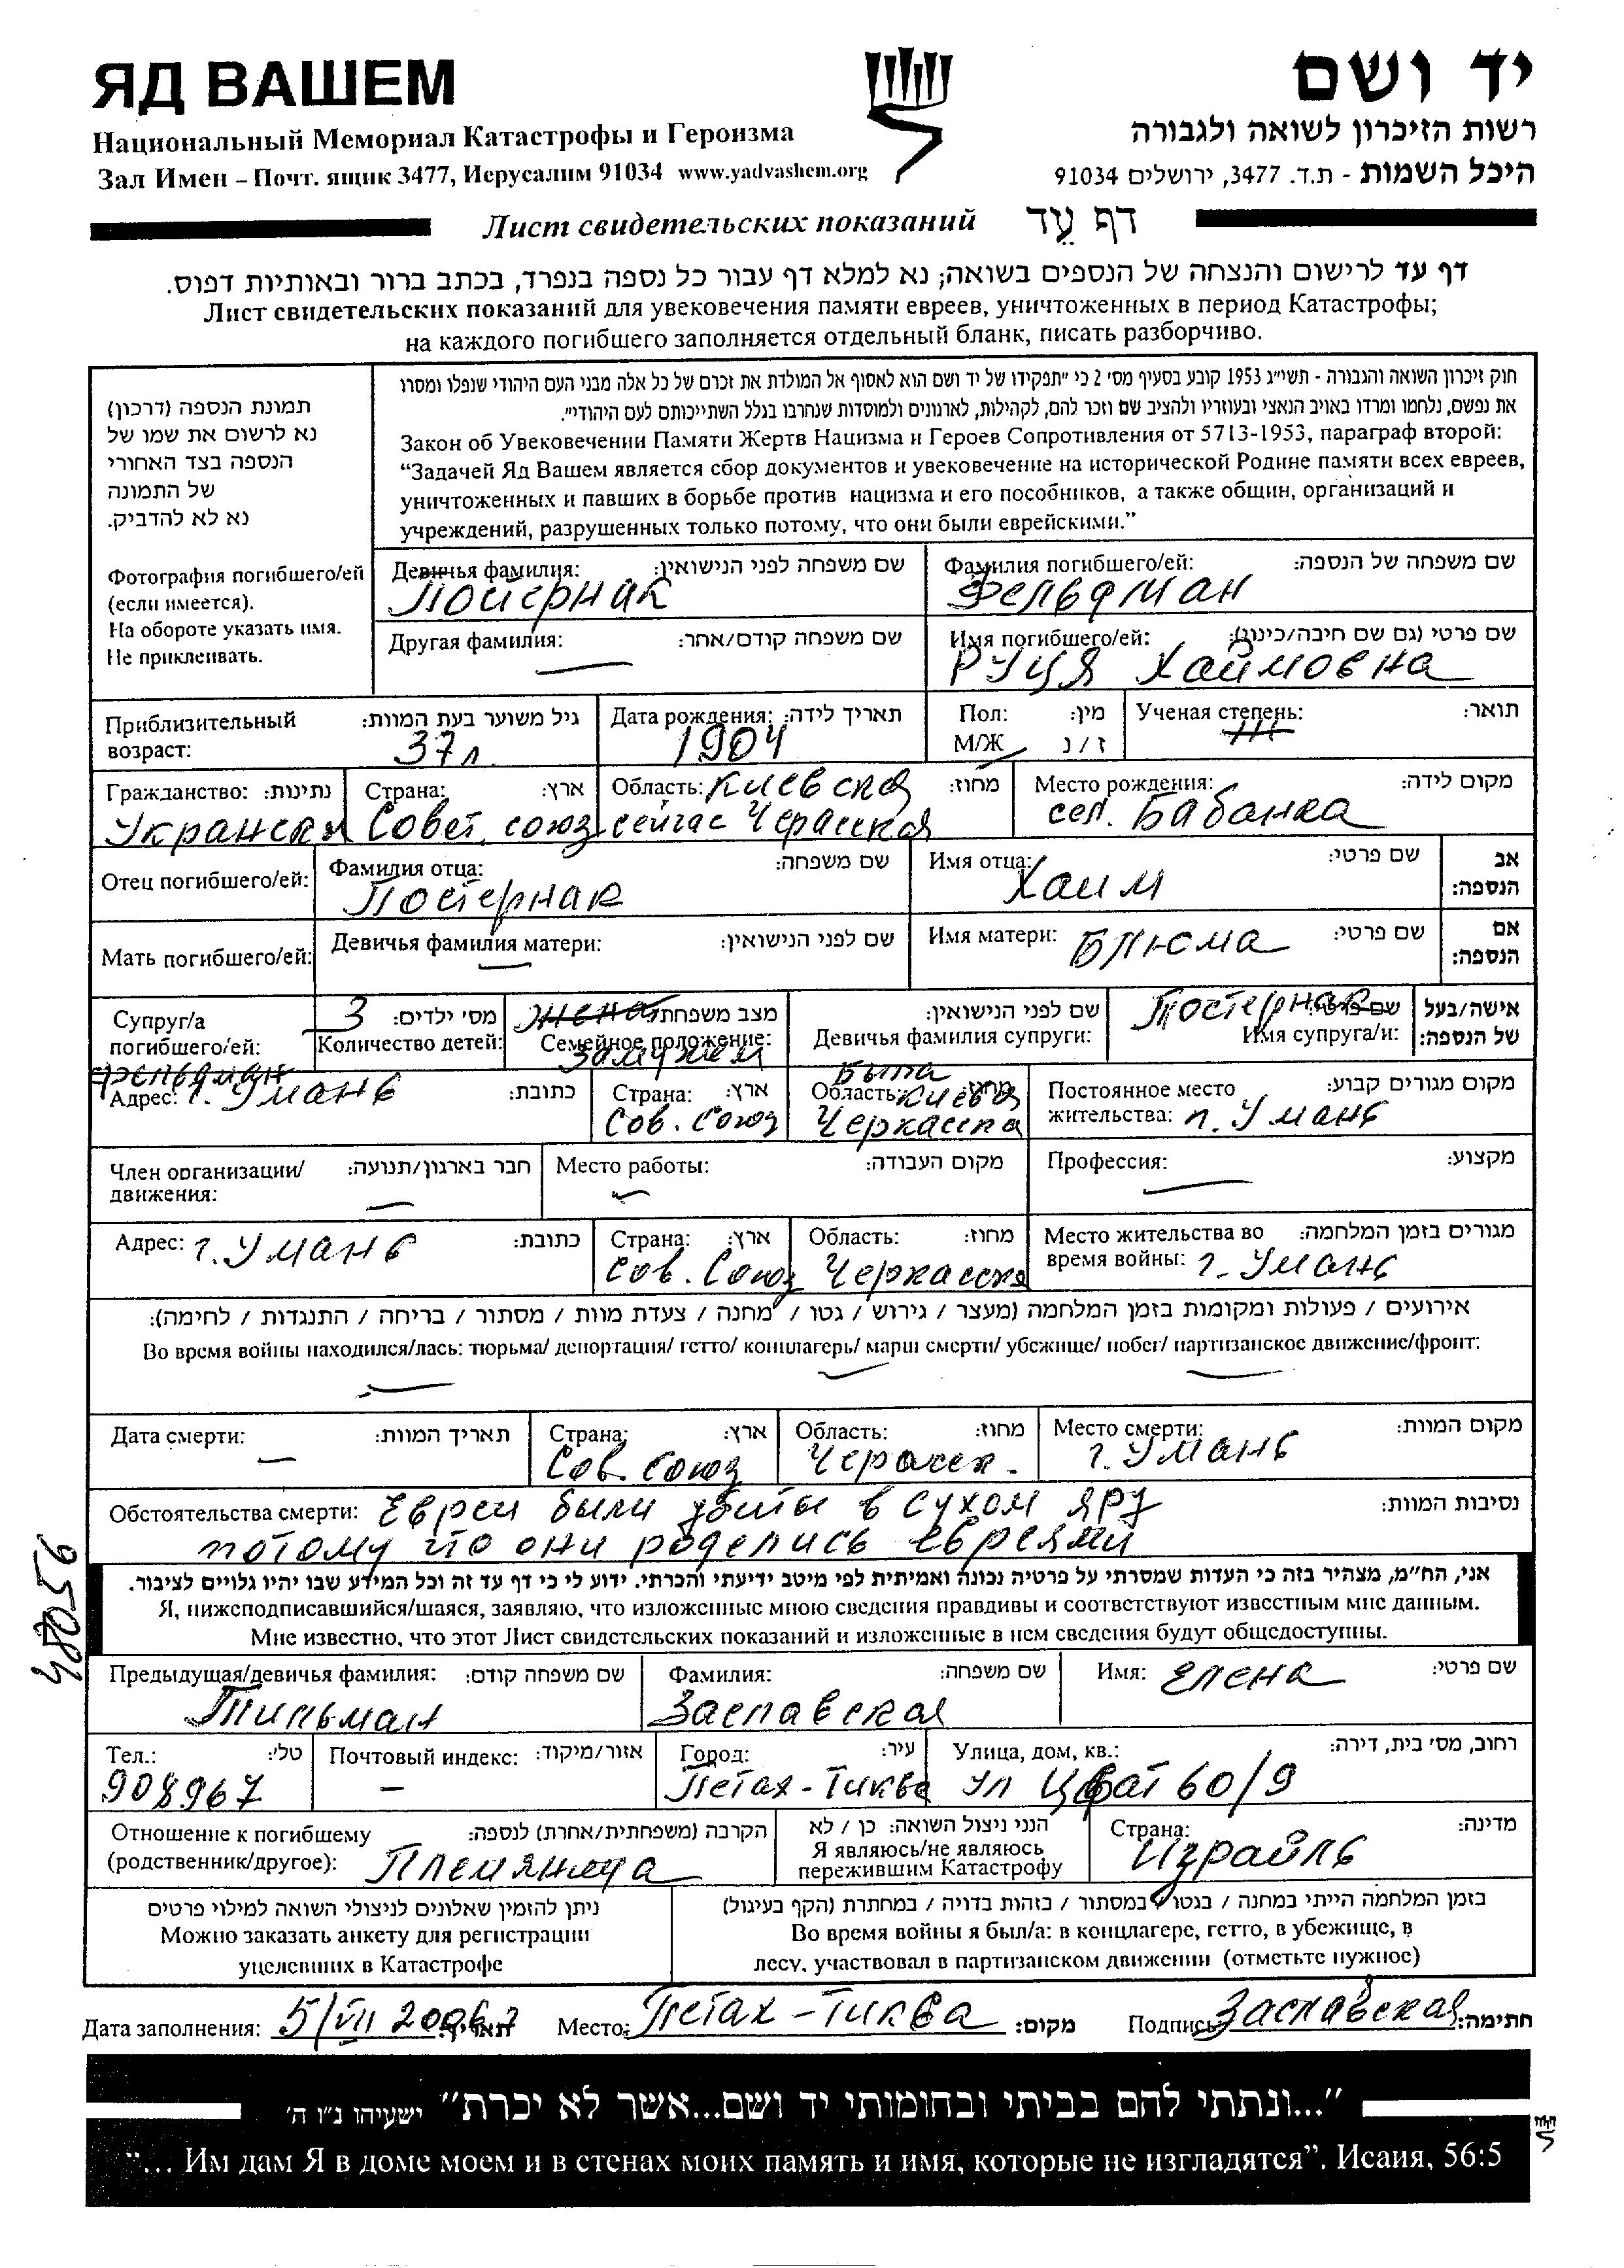 ЯД ВАШЕМ
יד ושם
Национальный Мемориал Катастрофы и Героизма
רשות הזיכרון לשואה ולגבורה
Зал Имен – Почт. ящик 3477, Иерусалим 91034 www.yadvashem.org
היכל השמות - ת.ד. 3477, ירושלים 91034
Лист свидетельских показаний דף עֵד
דף עד לרישום והנצחה של הנספים בשואה; נא למלא דף עבור כל נספה בנפרד, בכתב ברור ובאותיות דפוס.
Лист свидетельских показаний для увековечения памяти евреев, уничтоженных в период Катастрофы;
на каждого погибшего заполняется отдельный бланк, писать разборчиво.
תמונת הנספה (דרכון)
נא לרשום את שמו של
הנספה בצד האחורי
של התמונה
נא לא להדביק.
Фотография погибшего/ей
(если имеется).
На обороте указать имя.
Не приклеивать.
חוק זיכרון השואה והגבורה - תשי״ג 1953 קובע בסעיף מס׳ 2 כי ״תפקידו של יד ושם הוא לאסוף אל המולדת את זכרם של כל אלה מבני העם היהודי שנפלו ומסרו
את נפשם, נלחמו ומרדו באויב הנאצי ובעוזריו ולהציב שם וזכר להם, לקהילות, לארגונים ולמוסדות שנחרבו בגלל השתייכותם לעם היהודי״.
Закон об Увековечении Памяти Жертв Нацизма и Героев Сопротивления от 5713-1953, параграф второй:
“Задачей Яд Вашем является сбор документов и увековечение на исторической Родине памяти всех евреев,
уничтоженных и павших в борьбе против нацизма и его пособников, а также общин, организаций и
учреждений, разрушенных только потому, что они были еврейскими.”
Девичья фамилия: שם משפחה לפני הנישואין: Фамилия погибшего/ей: שם משפחה של הנספה:
Фельдман
Другая фамилия: שם משפחה קודם/אחר: Имя погибшего/ей: שם פרטי (גם שם חיבה/כינוי):
Руця Хаймовна
Приблизительный возраст: גיל משוער בעת המוות: Дата рождения: תאריך לידה: Пол: מין: Ученая степень: תואר:
37 л. 1904 М/Ж ז / נ
Гражданство: נתינות: Страна: ארץ: Область: Киевская מחוז: Место рождения: מקום לידה:
Укранская Совет. союз сейчас Черасская сел. Бабанка
Отец погибшего/ей: Фамилия отца: שם משפחה: Имя отца: שם פרטי: אב הנספה:
Постернак Хаим
Мать погибшего/ей: Девичья фамилия матери: שם לפני הנישואין: Имя матери: Блюма שם פרטי: אם הנספה:
Супруг/а погибшего/ей: 3 מס׳ ילדים: Количество детей: жена מצב משפחתי: Семейное положение: замужем שם לפני הנישואין: Девичья фамилия супруги: Постернак שם פרטי: Имя супруга/и: אישה/בעל של הנספה:
Фельдман
Адрес: г. Умань כתובת: Страна: ארץ: Сов. Союз Была Область: מחוז: Киевая Черкасска Постоянное место жительства: מקום מגורים קבוע: г. Умань
Член организации/ движения: חבר בארגון/תנועה: Место работы: מקום העבודה: Профессия: מקצוע:
Адрес: г. Умань כתובת: Страна: ארץ: Сов. Союз Область: מחוז: Черкасская Место жительства во время войны: מגורים בזמן המלחמה: г. Умань
אירועים / פעולות ומקומות בזמן המלחמה (מעצר / גירוש / גטו / מחנה / צעדת מוות / מסתור / בריחה / התנגדות / לחימה):
Во время войны находился/лась: тюрьма/ депортация/ гетто/ концлагерь/ марш смерти/ убежище/ побег/ партизанское движение/фронт:
Дата смерти: תאריך המוות: Страна: ארץ: Область: מחוז: Место смерти: מקום המוות:
Сов. Союз г. Умань
Обстоятельства смерти: Евреи были убиты в сухом яру נסיבות המוות:
потому что они роделись евреями
אני, הח״מ, מצהיר בזה כי העדות שמסרתי על פרטיה נכונה ואמיתית לפי מיטב ידיעתי והכרתי. ידוע לי כי דף עד זה וכל המידע שבו יהיו גלויים לציבור.
Я, нижеподписавшийся/шаяся, заявляю, что изложенные мною сведения правдивы и соответствуют известным мне данным.
Мне известно, что этот Лист свидетельских показаний и изложенные в нем сведения будут общедоступны.
Предыдущая/девичья фамилия: שם משפחה קודם: Фамилия: שם משפחה: Имя: Елена שם פרטי:
Тильман Заславская
Тел.: טל׳: Почтовый индекс: אזור/מיקוד: Город: עיר: Улица, дом, кв.: רחוב, מס׳ בית, דירה:
908967 Петах-Тиква ул Цфат 60/9
Отношение к погибшему (родственник/другое): הקרבה (משפחתית/אחרת) לנספה: Племяница
הנני ניצול השואה: כן / לא
Я являюсь/не являюсь
пережившим Катастрофу
Страна: מדינה: Израйль
ניתן להזמין שאלונים לניצולי השואה למילוי פרטים
Можно заказать анкету для регистрации
уцелевших в Катастрофе
בזמן המלחמה הייתי במחנה / בגטו / במסתור / בזהות בדויה / במחתרת (הקף בעיגול)
Во время войны я был/а: в концлагере, гетто, в убежище, в
лесу, участвовал в партизанском движении (отметьте нужное)
Дата заполнения: 5/VII 2006 תאריך: Место: Петах-Тиква מקום: Подпись: Заславская חתימה:
"...ונתתי להם בביתי ובחומותי יד ושם...אשר לא יכרת" ישעיהו נ״ו ה׳
“... Им дам Я в доме моем и в стенах моих память и имя, которые не изгладятся”. Исаия, 56:5